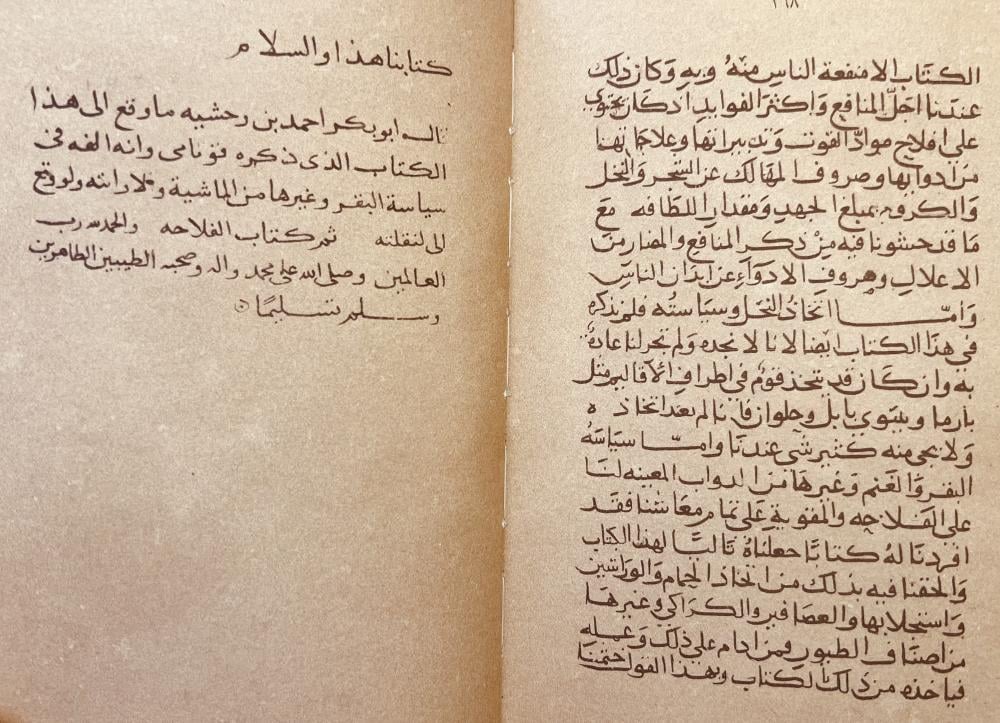 ٣٦٨
الكتاب الا منفعة الناس منهُ وبهِ وَكان ذلك
عندنا اجلّ المنافع وَاكثرَ الفوايد اذ كان يحتوي
على افلاح موادّ القوت وَتدبيراتها وعلاجاتها
من ادوايها وصروف المهالك عن الشجر وَالنخل
وَالكروم بمبلغ الجهدِ وَمقدارِ الطافه مَع
مَا قد حشونا فيه مِنْ ذكر المنافع والمضار من
الاعلالِ وضروفِ الادوَاءِ عن ابدَان الناسِ
وَامّــا اتخاذُ النحل وسيَاستُه فلم نذكره
في هذا الكتاب ايضا لانا لا نجده وَلم تجر لنا عَادةٌ
به وان كَان قد يتخذ قومٌ في اطراف الاقاليم مثل
بارما وسوي بابل وحلوان فانا لم نعد اتخاذه
وَلا يجي منه كثير شي عندنا وامّـا سيَاسَة
البقر وَالغنم وَغيرهَا من الدواب المعينه لنَا
على الفلاحه والمقوية عَلى تمام معَاشنا فقَد
افردنَا لهُ كتابًا جعلناهُ تاليًا لهذا الكتاب
وَالحقنا فيه بذلك من اتخاذ الحمام وَالوراشين
وَاستجلابها والعصَافير والكرَاكي وغيرهَا
من اصنَاف الطيور فمن ادام على ذلك وَعمله
فياخذه من ذلك الكتاب وبهذا القول ختمنا
كتابنا هذا والسلام
قال ابو بكر احمد بن وحشيه ما وقع الى هذا
الكتاب الذي ذكره قوثامى وانه الفه في
سياسة البقر وغيرها من الماشية ولا رايته ولو وقع
الى لنقلته تم كتاب الفلاحه والحمد لله رب
العالمين وصلى الله على محمد واله وصحبه الطيبين الطاهرين
وسلم تسليمًا